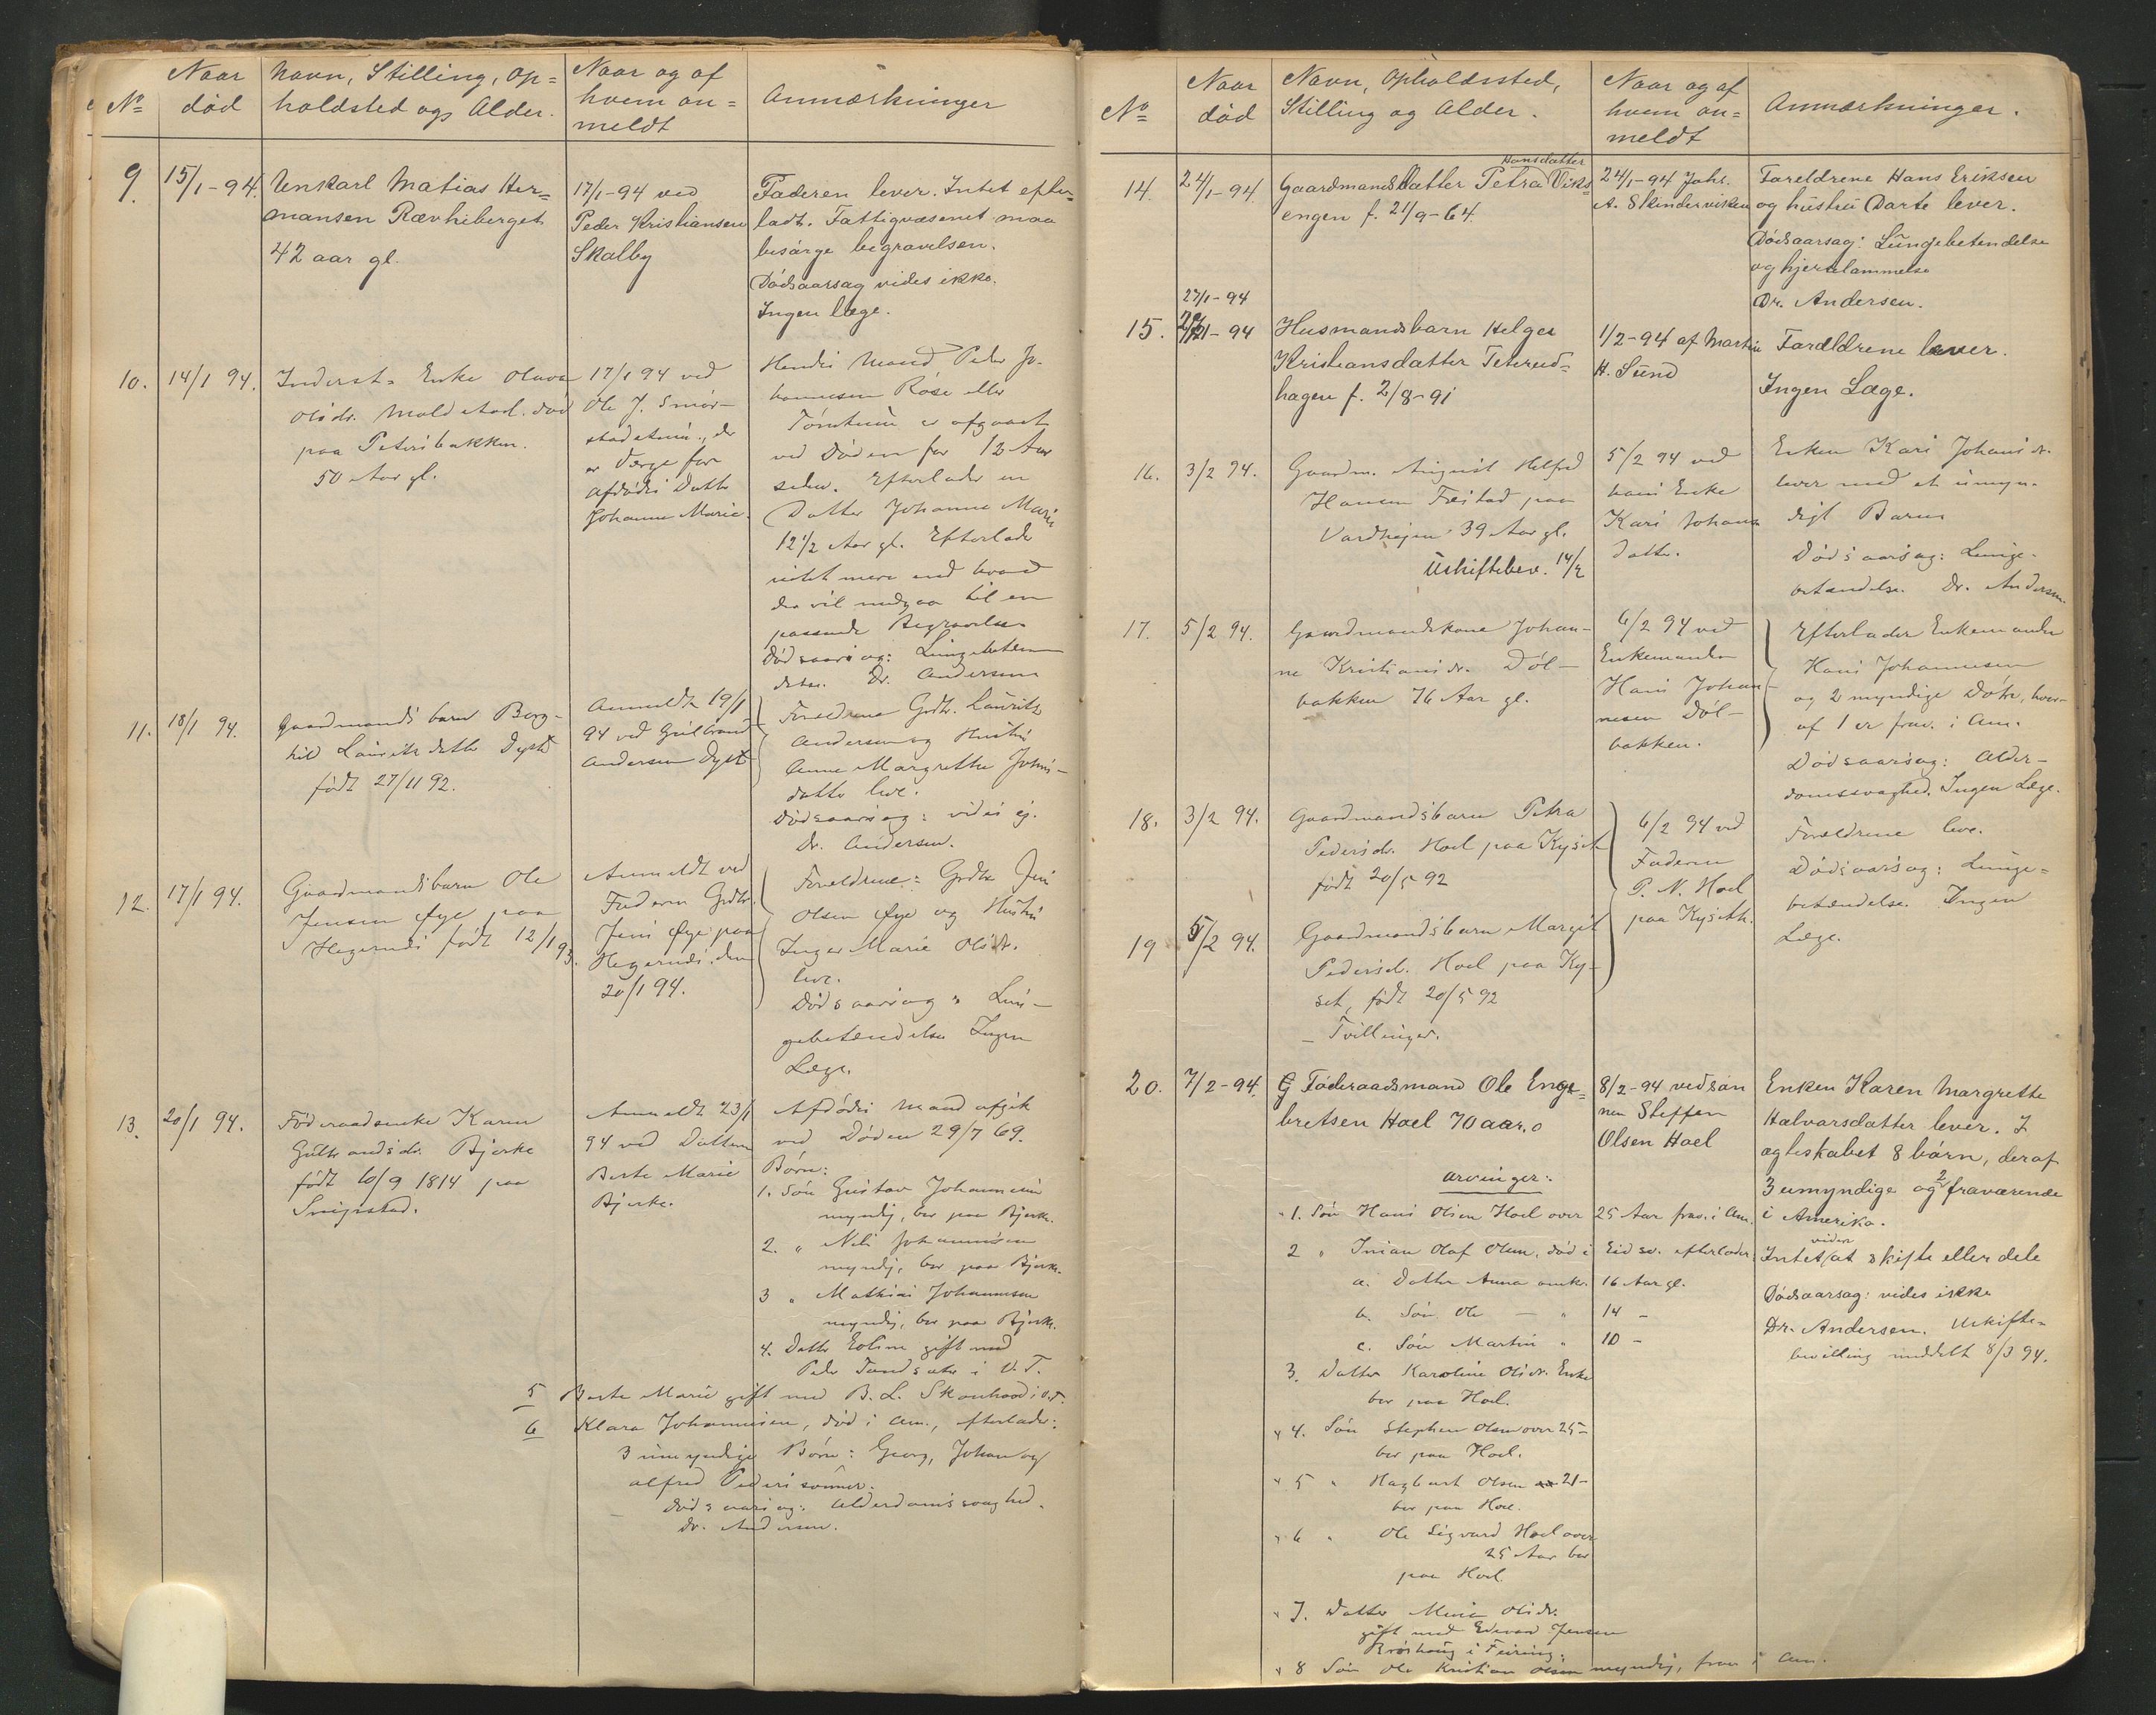 No Naar død Navn, Stilling, Op=holdsted ogs Alder. Naar og af hvem an=meldt Anmærkninger
9. 15/1-94. Unkarl Matias Her=
mansen Rævhiberget
42 aar gl.
17/1-94 ved
Peder Kristiansen
Skalby
Faderen lever. Intet efter=
ladt. Fattigvæsenet maa
besørge begravelsen.
Dødsaarsag vides ikke.
Ingen læge.
10. 14/1 94. Inderst. Enke Olava
Olsdr. Molstad. død
paa Petersbakken.
50 Aar gl.
17/1 94 ved
Ole J. Smør-
stadstui., der
er Værge for
afdødes Datter
Johanne Marie.
Hendes Mand Peder Jo-
hannesen Røise eller
er afgaaet
ved Døden for 12 Aar
siden. Efterlader en
Datter Johanne Marie
12 1/2 Aar gl. Efterlader
intet mere end hvad
der vil medgaa til en
passende Begravelse
Dødsaarsag: Lungebetæn-
delse. Dr. Andersen
11. 18/1 94. Gaardmandsbarn Borg-
hild Lauritzdatter Dyst
født 27/11 92.
Anmeldt 19/1
94 ved Gulbrand
Andersen Dyst
Forældrene Grdbr. Lauritz
Andersen og Hustru
Anne Margrethe Johns-
datter leve.
Dødsaarsag: vides ej.
Dr. Andersen.
12. 17/1 94. Gaardmandsbarn Ole
Jensen Øye paa
Hegernæs født 12/1 93.
Anmeldt ved
Faderen Grdbr.
Jens Øye paa
Hegernæs den
20/1 94.
Forældrene: Grdbr Jens
Olsen Øye og Hustru
Inger Marie Olsdr.
leve.
Dødsaarsag: Lun-
gebetændelse Ingen
Læge.
13. 20/1 94. Föderaadsenke Karen
Gulbrandsdr. Bjerke
født 10/9 1814 paa
Snigstad.
Anmeldt 23/1
94 ved Datteren
Berte Marie
Bjerke.
Afdødes Mand afgik
ved Døden 29/7 69.
Børn:
1. Søn Gustav Johannesen
myndig, bor paa Bjerke.
2. " Nils Johannesen
myndig, bor paa Bjerke.
3 " Mathias Johannesen
myndig, bor paa Bjerke.
4. Datter Eline gift med
Peder Tandsæter i V. T.
5 Berte Marie gift med B. L. Skonhovd i V.T.
6 Klara Johannesen, død i Am., efterlader:
3 umyndige Børn: Georg, Johan og
Alfred Pederssønner.
Dødsaarsag: Alderdomssvaghed.
Dr. Andersen.
No Naar død Navn, Opholdssted, Stilling og Alder. Naar og af hvem an=meldt Anmærkninger.
14. 24/1-94. Gaardmandsdatter Petra Hansdatter Viks=
engen f. 21/9-64.
24/1-94 Johs.
A. Skinderviken
Foreldrene Hans Eriksen
og hustru Dorte lever.
Dødsaarsag: Lungebetendelse
og hjertelammelse
Dr. Andersen.
27/1-94
15. Husmandsbarn Helga
Kristiansdatter Teterud=
hagen f. 2/8-91
1/2-94 af Martin
H. Sund
Foreldrene lever.
Ingen Læge.
16. 3/2 94. Gaardm. August Helfred
Hansen Festad paa
Vardhøjen 39 Aar gl.
Uskiftebev. 14/2
5/2 94 ved
hans Enke
Kari Johans
datter.
Enken Kari Johansdr.
lever med et umyn-
digt Barn
Dødsaarsag: Lunge-
betændelse. Dr. Andersen.
17. 5/2 94. Gaardmandskone Johan-
ne Kristiansdr. Døl-
bakken 76 Aar gl.
6/2 94 ved
Enkemanden
Hans Johan-
nesen Døl-
bakken.
Efterlader Enkemanden
Hans Johannesen
og 2 myndige Døtre, hvor-
af 1 er frav. i Am.
Dødsaarsag: Alder-
domssvaghed. Ingen Læge.
18. 3/2 94. Gaardmandsbarn Petra
Pedersdr. Hoel paa Kyset
født 20/5 92
6/2 94 ved
Faderen
P. N. Hoel
paa Kyseth.
Forældrene leve.
Dødsaarsag: Lunge=
betændelse. Ingen
Læge.
19 5/2 94. Gaardmandsbarn Margit
Pedersdr. Hoel paa Ky-
set, født 20/5 92
- Tvillinger.
20. 7/2-94. Føderaadsmand Ole Enge=
bretsen Hoel 70 aar.
8/2-94 ved søn
nen Steffen
Olsen Hoel
Enken Karen Margrette
Halvorsdatter lever. I
egteskabet 8 børn, deraf
3 umyndige og 2 fraværende
i Amerika.
Intet videre at skifte eller dele
Dødsaarsag: vides ikke
Dr. Andersen. Uskifte=
bevilling meddelt 8/3 94.
Arvinger:
1. Søn Hans Olsen Hoel over 25 Aar frav. i Am.
2 " Inian Olaf Olsen, død i Eidsv. efterlader:
a. Datter Anna omkr. 16 Aar gl.
b. Søn Ole - " 14 -
c. Søn Martin " 10 -
3. Datter Karoline Olsdr. Enke
bor paa Hoel.
4. Søn Stephen Olsen over 25 -
bor paa Hoel.
5 " Hagbart Olsen 21 -
bor paa Hoel.
6 " Ole Sigvard Hoel over
25 Aar bor
paa Hoel.
7. Datter Olsdr.
gift med Edvard Jensen
i Feiring.
8 Søn Ole Kristian Olsen myndig, frav i Am.